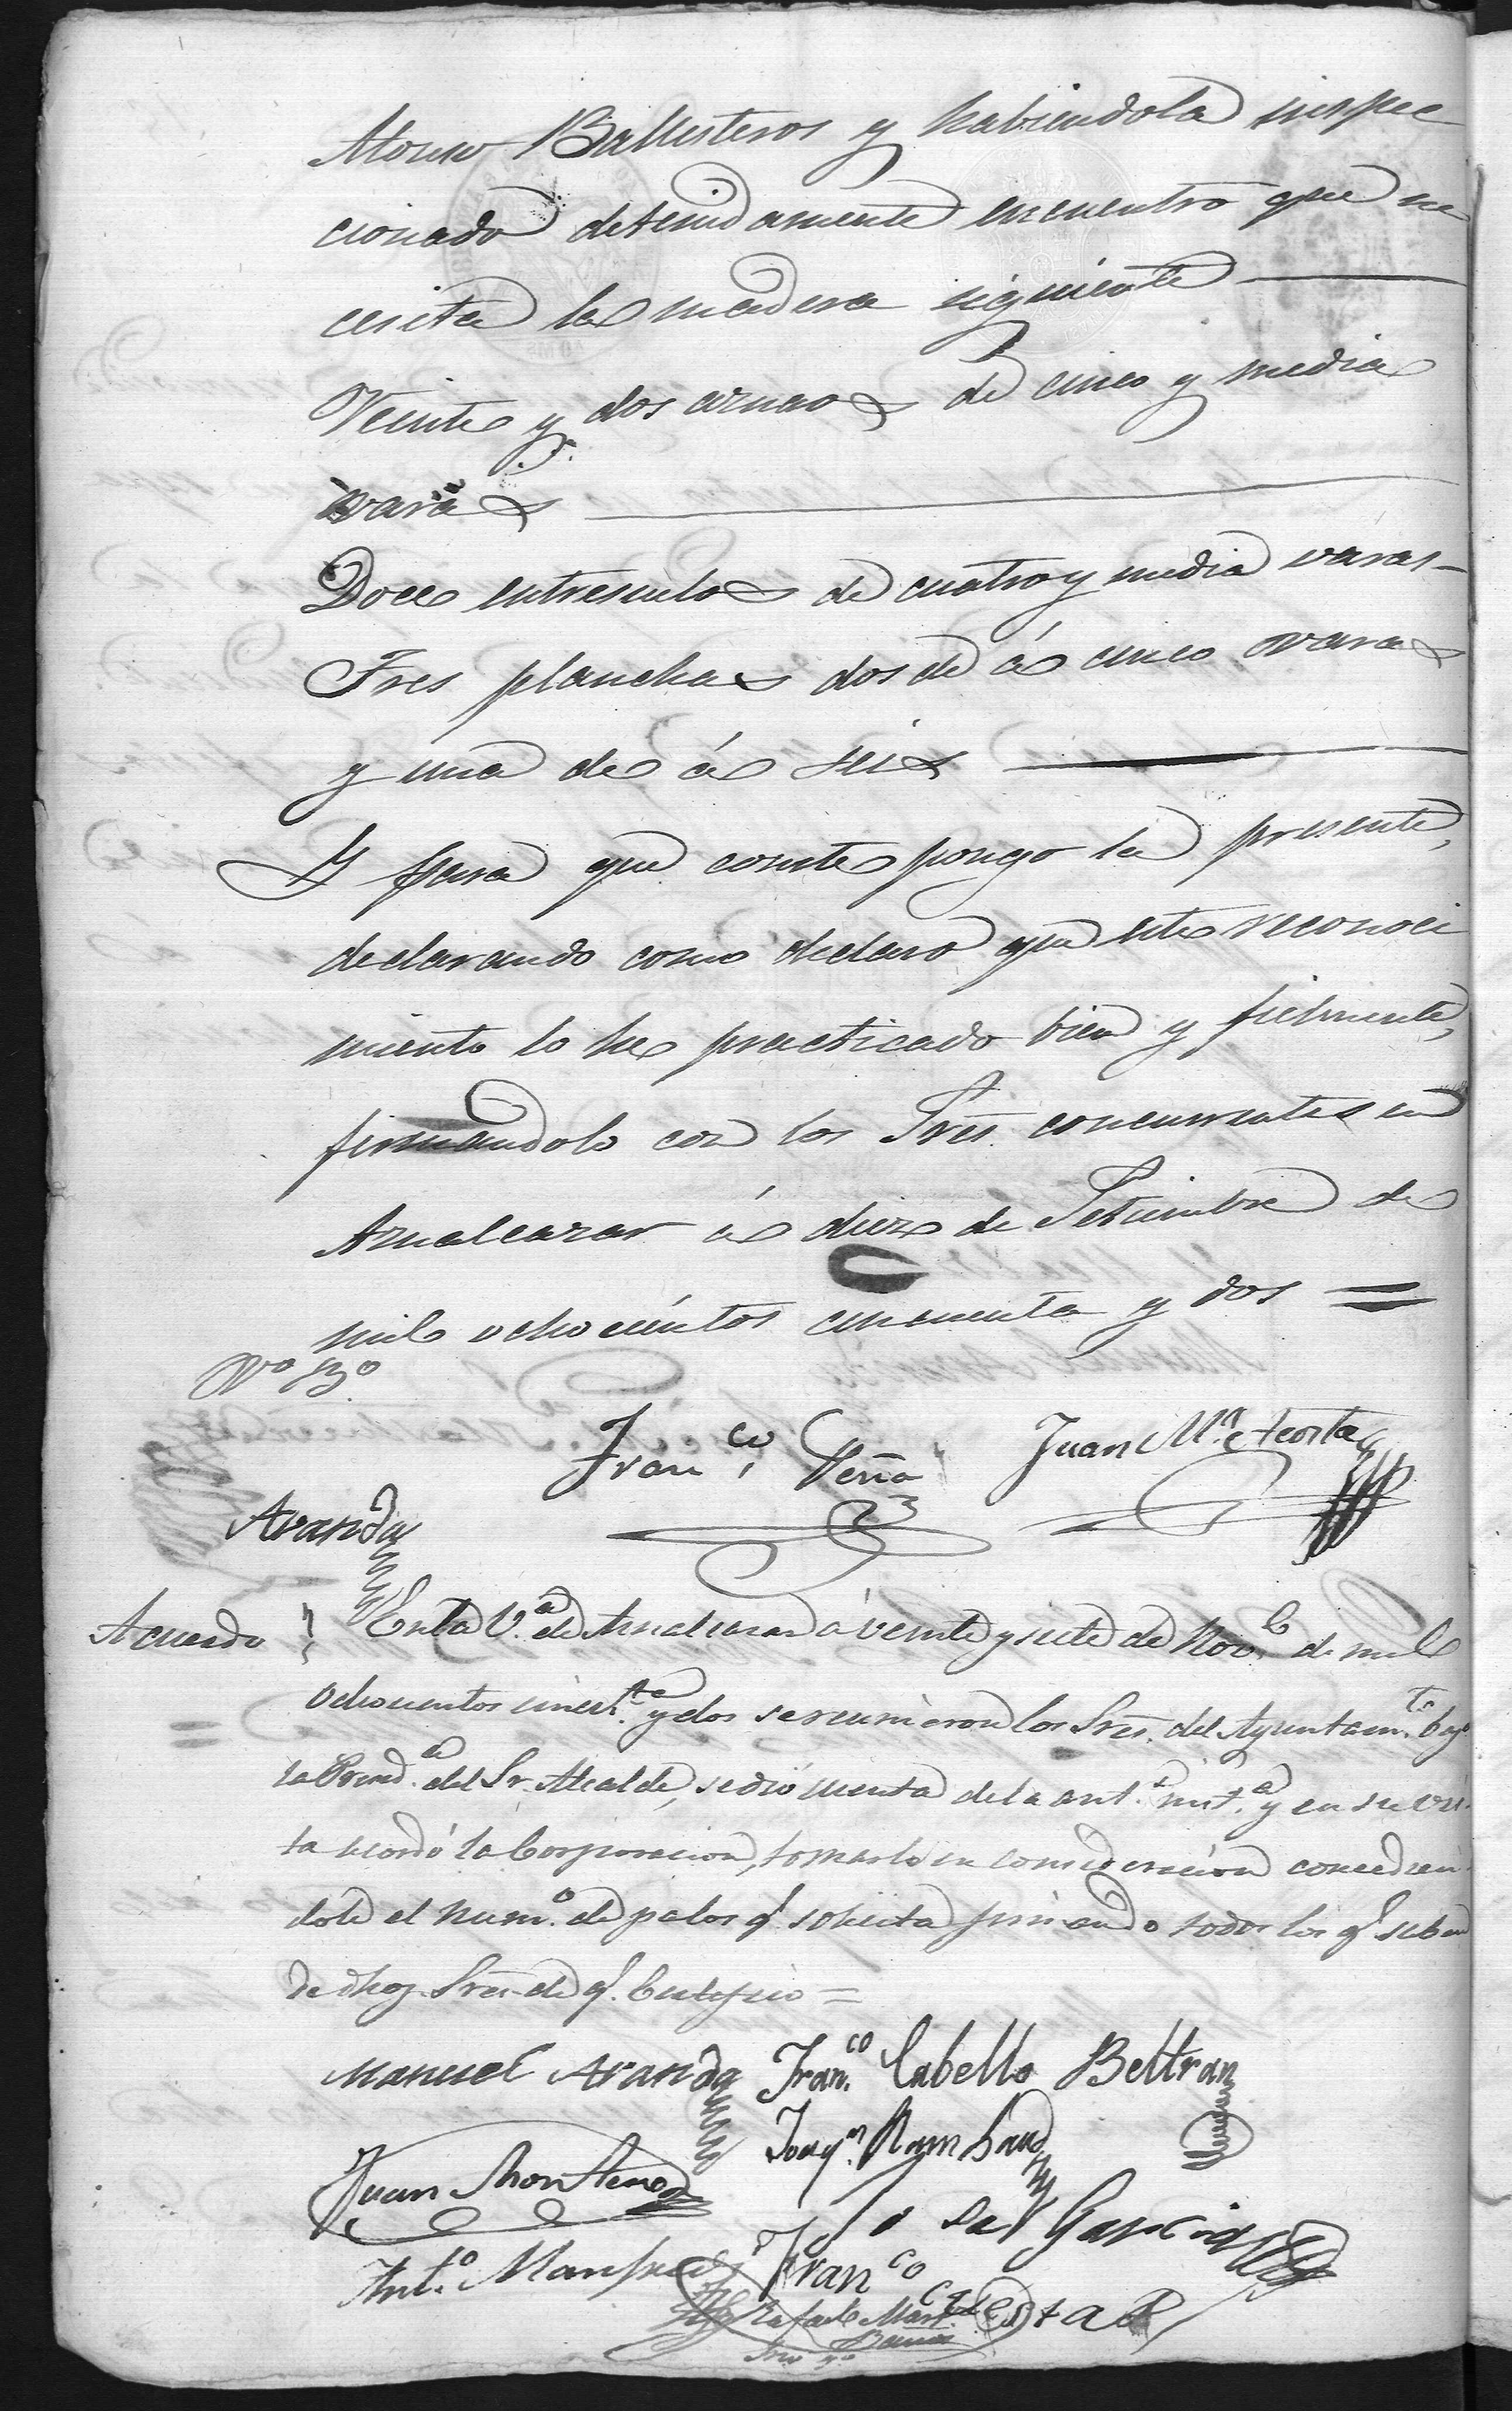 Alonso Ballesteros y habiendola inspec
cionado detenidamente encuentro que ne
cesita la madera siguiente
Veinte y dos aznaos de cinco y media
varas
Doce entresuelos de cuatro y media varas
Tres planchas dos de á cinco varas
y una de á seis
Y para que conste pongo la presente,
declarando como declaro que este reconoci
miento lo he practicado bien y fielmente,
firmandolo con los Sres. concurrentes en
Aznalcazar á diez de Setiembre de
mil ochocientos cincuenta y dos =
Vo Bo
Franco Peña
Juan Ma Acosta
Aranda
Acuerdo
En la Va. de Aznalcazar á veinte y siete de Novb. de mil
ochocientos cincta. y dos se reunieron los Sres. del Ayuntamto. bajo
la Presida. del Sr. Alcalde, se dió cuenta de la antr. insta. y en su vis
ta acordó la Corporacion, tomarlo en consideracion concedien
dole el numo. de palos q. solicita firmando todos los q. saben
de dhoz Sres. de q. Certifico =
Manuel Aranda
Franco. Cabello Beltran
Juan Montero
Joaqn.
Jose Garcia
Anto. Manfredi
Franco
Rafael Marz.
Srio